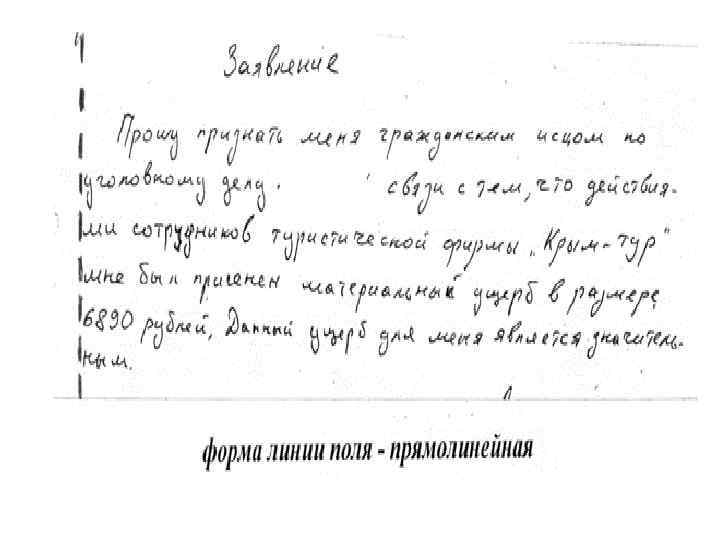 Заявление
Прошу признать меня гражданским исцом по
уголовному делу. связи с тем, что действия-
ми сотрудников туристической фирмы „Крым-тур"
мне был приченен материальный ущерб в размере
6890 рублей, Данный ущерб для меня является значитель-
ным.
форма линии поля - прямолинейная